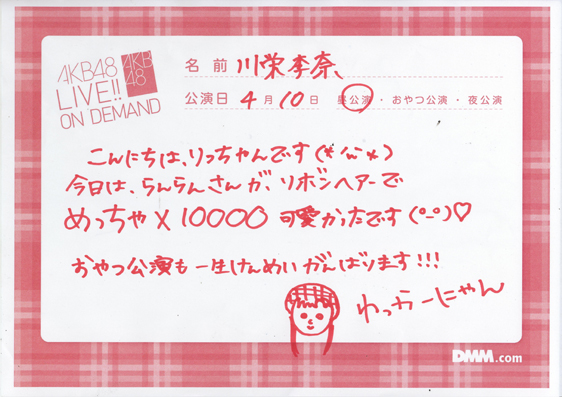 AKB48
LIVE!!
ON DEMAND
AKB
48
名前 川栄李奈、
公演日 4月10日 昼公演・おやつ公演・夜公演
こんにちは、りっちゃんです(*´ω`*)
今日は、らんらんさんが、リボンヘアーで
めっちゃ×10000可愛かったです(°_°)♡
おやつ公演も一生けんめいがんばります!!!
わっかーにゃん
DMM.com